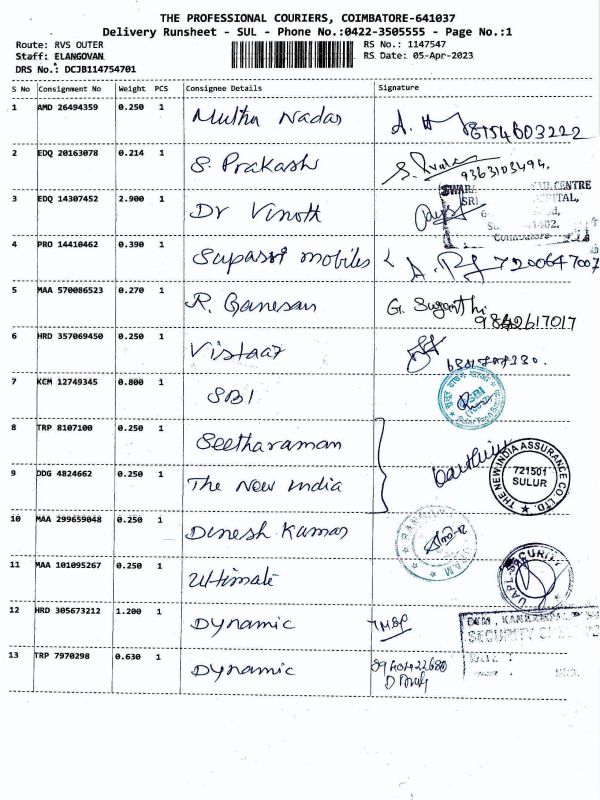 THE PROFESSIONAL COURIERS, COIMBATORE-641037
Delivery Runsheet - SUL - Phone No.:0422-3505555 - Page No.:1
Route: RVS OUTER
RS No.: 1147547
Staff: ELANGOVAN
RS Date: 05-Apr-2023
DRS No.: DCJB114754701
S No Consignment No Weight PCS Consignee Details Signature
1 AMD 26494359 0.250 1 Muthu Nadar
2 EDQ 20163078 0.214 1 S. Prakash 9363103494.
3 EDQ 14307452 2.900 1 Dr Vinoth
4 PRO 14410462 0.390 1 Supassi mobiles
5 MAA 570086523 0.270 1 R. Ganesan G. Suganthi
9842617017
6 HRD 357069450 0.250 1 Vistaar
7 KCM 12749345 0.800 1 SBI
SBI
8 TRP 8107100 0.250 1 Seetharaman
9 DDG 4824662 0.250 1 The New India
THE NEW INDIA ASSURANCE CO LTD.
721501
SULUR
10 MAA 299659048 0.250 1 Dinesh Kumar
11 MAA 101095267 0.250 1 Ultimate
UAPL-SECURITY
12 HRD 305673212 1.200 1 Dynamic
SECURITY
13 TRP 7970298 0.630 1 Dynamic